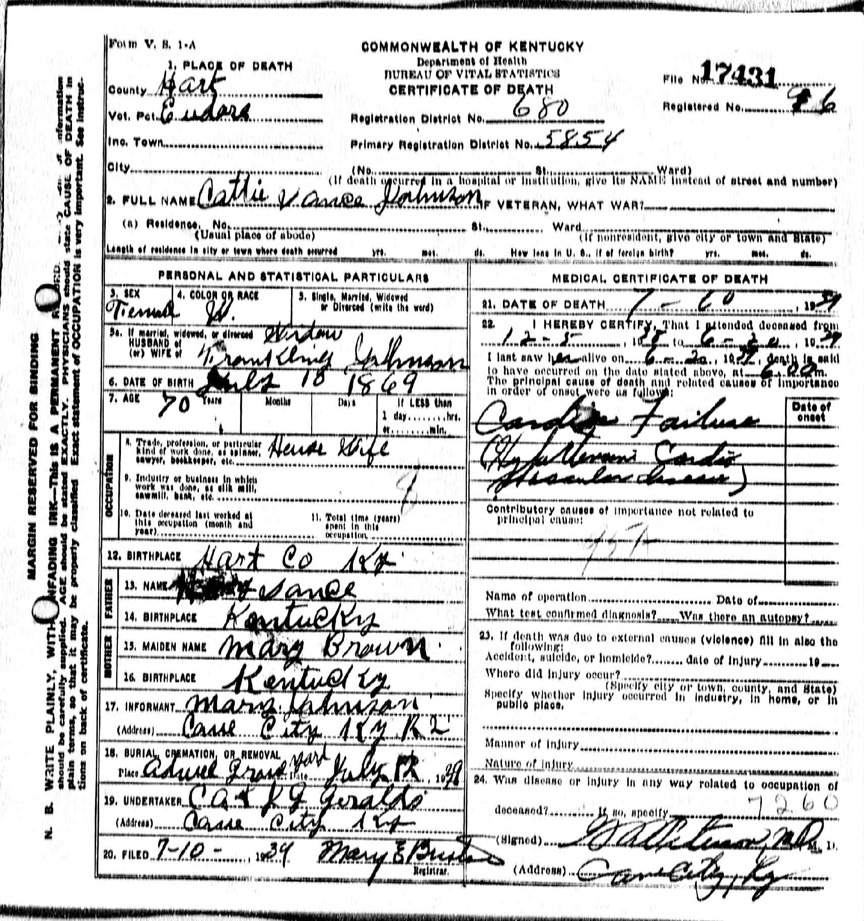 Form V. S. 1-A
COMMONWEALTH OF KENTUCKY
Department of Health
BUREAU OF VITAL STATISTICS
CERTIFICATE OF DEATH
File No. 17431
Registered No. 96
1. PLACE OF DEATH
County Hart
Vot. Pct. Eudora
Inc. Town
City
Registration District No. 680
Primary Registration District No. 5854
(No. St. Ward)
(If death occurred in a hospital or institution, give its NAME instead of street and number)
2. FULL NAME Cattie Vance Johnson IF VETERAN, WHAT WAR?
(a) Residence, No. St. Ward
(Usual place of abode) (If nonresident, give city or town and State)
Length of residence in city or town where death occurred yrs. mos. ds. How long in U. S., if of foreign birth? yrs. mos. ds.
PERSONAL AND STATISTICAL PARTICULARS
3. SEX 4. COLOR OR RACE 5. Single, Married, Widowed or Divorced (write the word)
Female W.
5a. If married, widowed, or divorced Widow
HUSBAND of
(or) WIFE of Johnson
6. DATE OF BIRTH July 18 1869
7. AGE 70 Years Months Days If LESS than
1 day, hrs.
or min.
OCCUPATION
8. Trade, profession, or particular
kind of work done, as spinner, House Wife
sawyer, bookkeeper, etc.
9. Industry or business in which
work was done, as silk mill,
sawmill, bank, etc.
10. Date deceased last worked at
this occupation (month and
year)
11. Total time (years)
spent in this
occupation
12. BIRTHPLACE Hart Co Ky.
FATHER
13. NAME Vance
14. BIRTHPLACE Kentucky
MOTHER
15. MAIDEN NAME Mary Brown
16. BIRTHPLACE Kentucky
17. INFORMANT Mary Johnson
(Address) Cave City Ky R2
18. BURIAL, CREMATION, OR REMOVAL
Place Grave yard Date July 12, 1939
19. UNDERTAKER C A & J G Geralds
(Address) Cave City Ky
20. FILED 7-10-, 1939 Mary E
Registrar.
MEDICAL CERTIFICATE OF DEATH
21. DATE OF DEATH 7 - , 1939
22. I HEREBY CERTIFY, That I attended deceased from
12-5, 1938 to 6-20, 1939
I last saw her alive on 6-20, 1939, death is said
to have occurred on the date stated above, at 6:00 m.
The principal cause of death and related causes of importance
in order of onset were as follows:
Date of
onset
Cardiac Failure
Vascular disease)
Contributory causes of importance not related to
principal cause:
Name of operation Date of
What test confirmed diagnosis? Was there an autopsy?
23. If death was due to external causes (violence) fill in also the
following:
Accident, suicide, or homicide? date of injury 19
Where did injury occur?
(Specify city or town, county, and State)
Specify whether injury occurred in industry, in home, or in
public place.
Manner of injury
Nature of injury
24. Was disease or injury in any way related to occupation of
deceased? If so, specify
7260
(Signed) M. D.
(Address) Cave City, Ky
MARGIN RESERVED FOR BINDING
N. B. WRITE PLAINLY, WITH UNFADING INK—THIS IS A PERMANENT
should be carefully supplied. AGE should be stated EXACTLY. PHYSICIANS should state CAUSE OF DEATH in
plain terms, so that it may be properly classified. Exact statement of OCCUPATION is very important. See instruc-
tions on back of certificate.